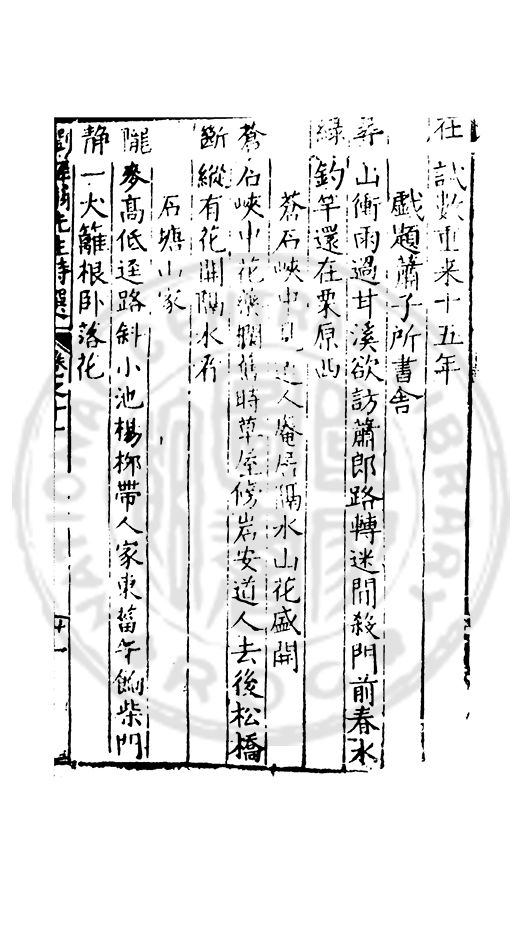 試數重來十五年
戲題蕭子所書舍
尋山衝雨過甘溪欲訪蕭郎路轉迷閒殺門前春水
綠釣竿還在栗原西
蒼石峽中見道人庵居隔水山花盛開
蒼石峽中花藥欄舊時草屋傍岩安道人去後松橋
斷縱有花開隔水看
石塘山家
隴麥高低逕路斜小池楊柳帶人家東菑午餉柴門
靜一犬籬根卧落花
先生詩選 卷之十一
十一